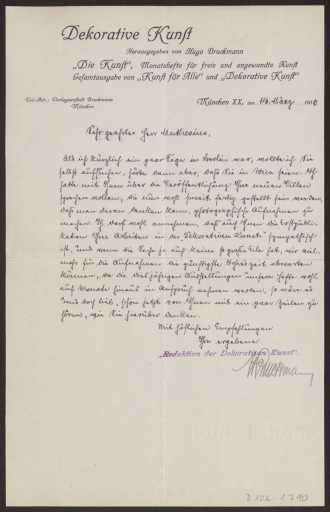 Dekorative Kunst
Herausgegeben von Hugo Bruckmann
„Die Kunst“, Monatshefte für freie und angewandte Kunst
Gesamtausgabe von „Kunst für Alle“ und „Dekorative Kunst“
Tel.-Adr.: Verlagsanstalt Bruckmann
München
München XX, am 14. März 190
Sehr geehrter Herr
Als ich kürzlich ein paar Tage in Berlin war, wollte ich Sie
selbst aufsuchen, hörte dann aber, daß Sie in Wien seien. Ich
hätte mit Ihnen über die Veröffentlichung Ihrer neuen Villen
sprechen wollen, die nun wohl soweit fertig gestellt sein werden,
daß man daran denken kann, photographische Aufnahmen zu
machen. Ich darf wohl annehmen, daß auch Ihnen die
Ihrer Arbeiten in der Dekorativen Kunst sympathisch
ist, und wenn die Sache ja auch keine so große Eile hat, wir
für die Aufnahmen die günstigste Jahreszeit abwarten
können, da die Ausstellungen unsere Hefte wohl
auf Monate hinaus in Anspruch nehmen werden, so wäre es
mir doch lieb, schon jetzt von Ihnen mit ein paar Zeilen zu
hören, wie Sie darüber denken.
Mit höflichen Empfehlungen
Ihr ergebener
Redaktion der Dekorativen Kunst.